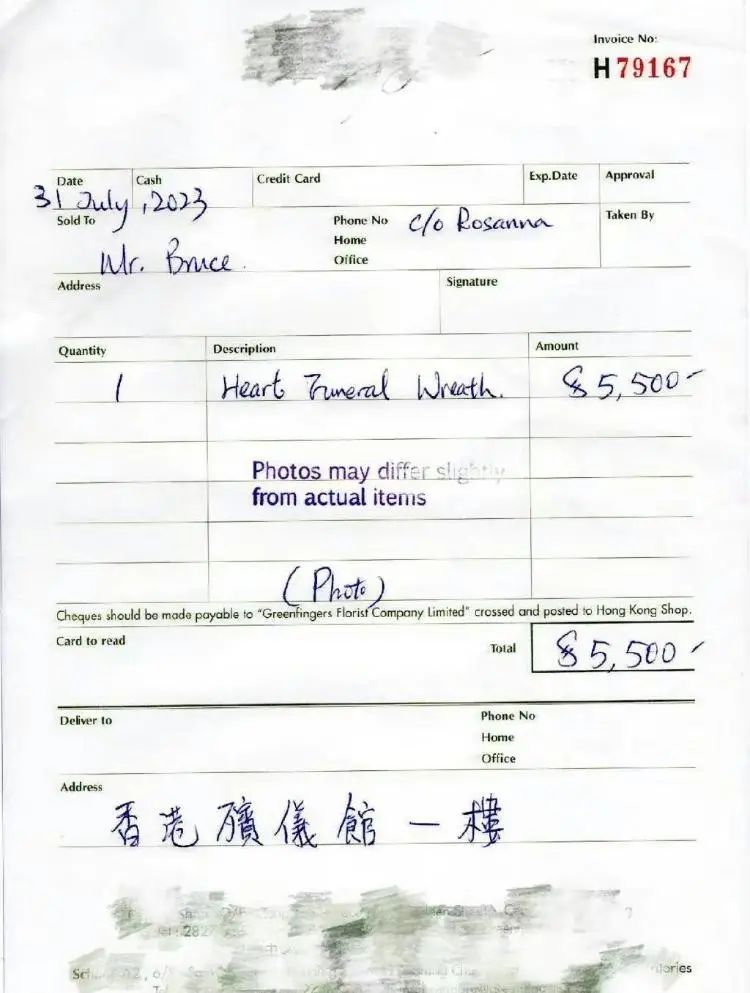 Invoice No:
H 79167
Date Cash Credit Card Exp.Date Approval
31 July, 2023
Sold To Phone No c/o Rosanna Taken By
Home
Mr. Bruce. Office
Address Signature
Quantity Description Amount
1 Heart Funeral Wreath. $5,500-
Photos may differ slightly
from actual items
(Photo)
Cheques should be made payable to "Greenfingers Florist Company Limited" crossed and posted to Hong Kong Shop.
Card to read
Total $5,500-
Deliver to Phone No
Home
Office
Address
香港殯儀館一樓